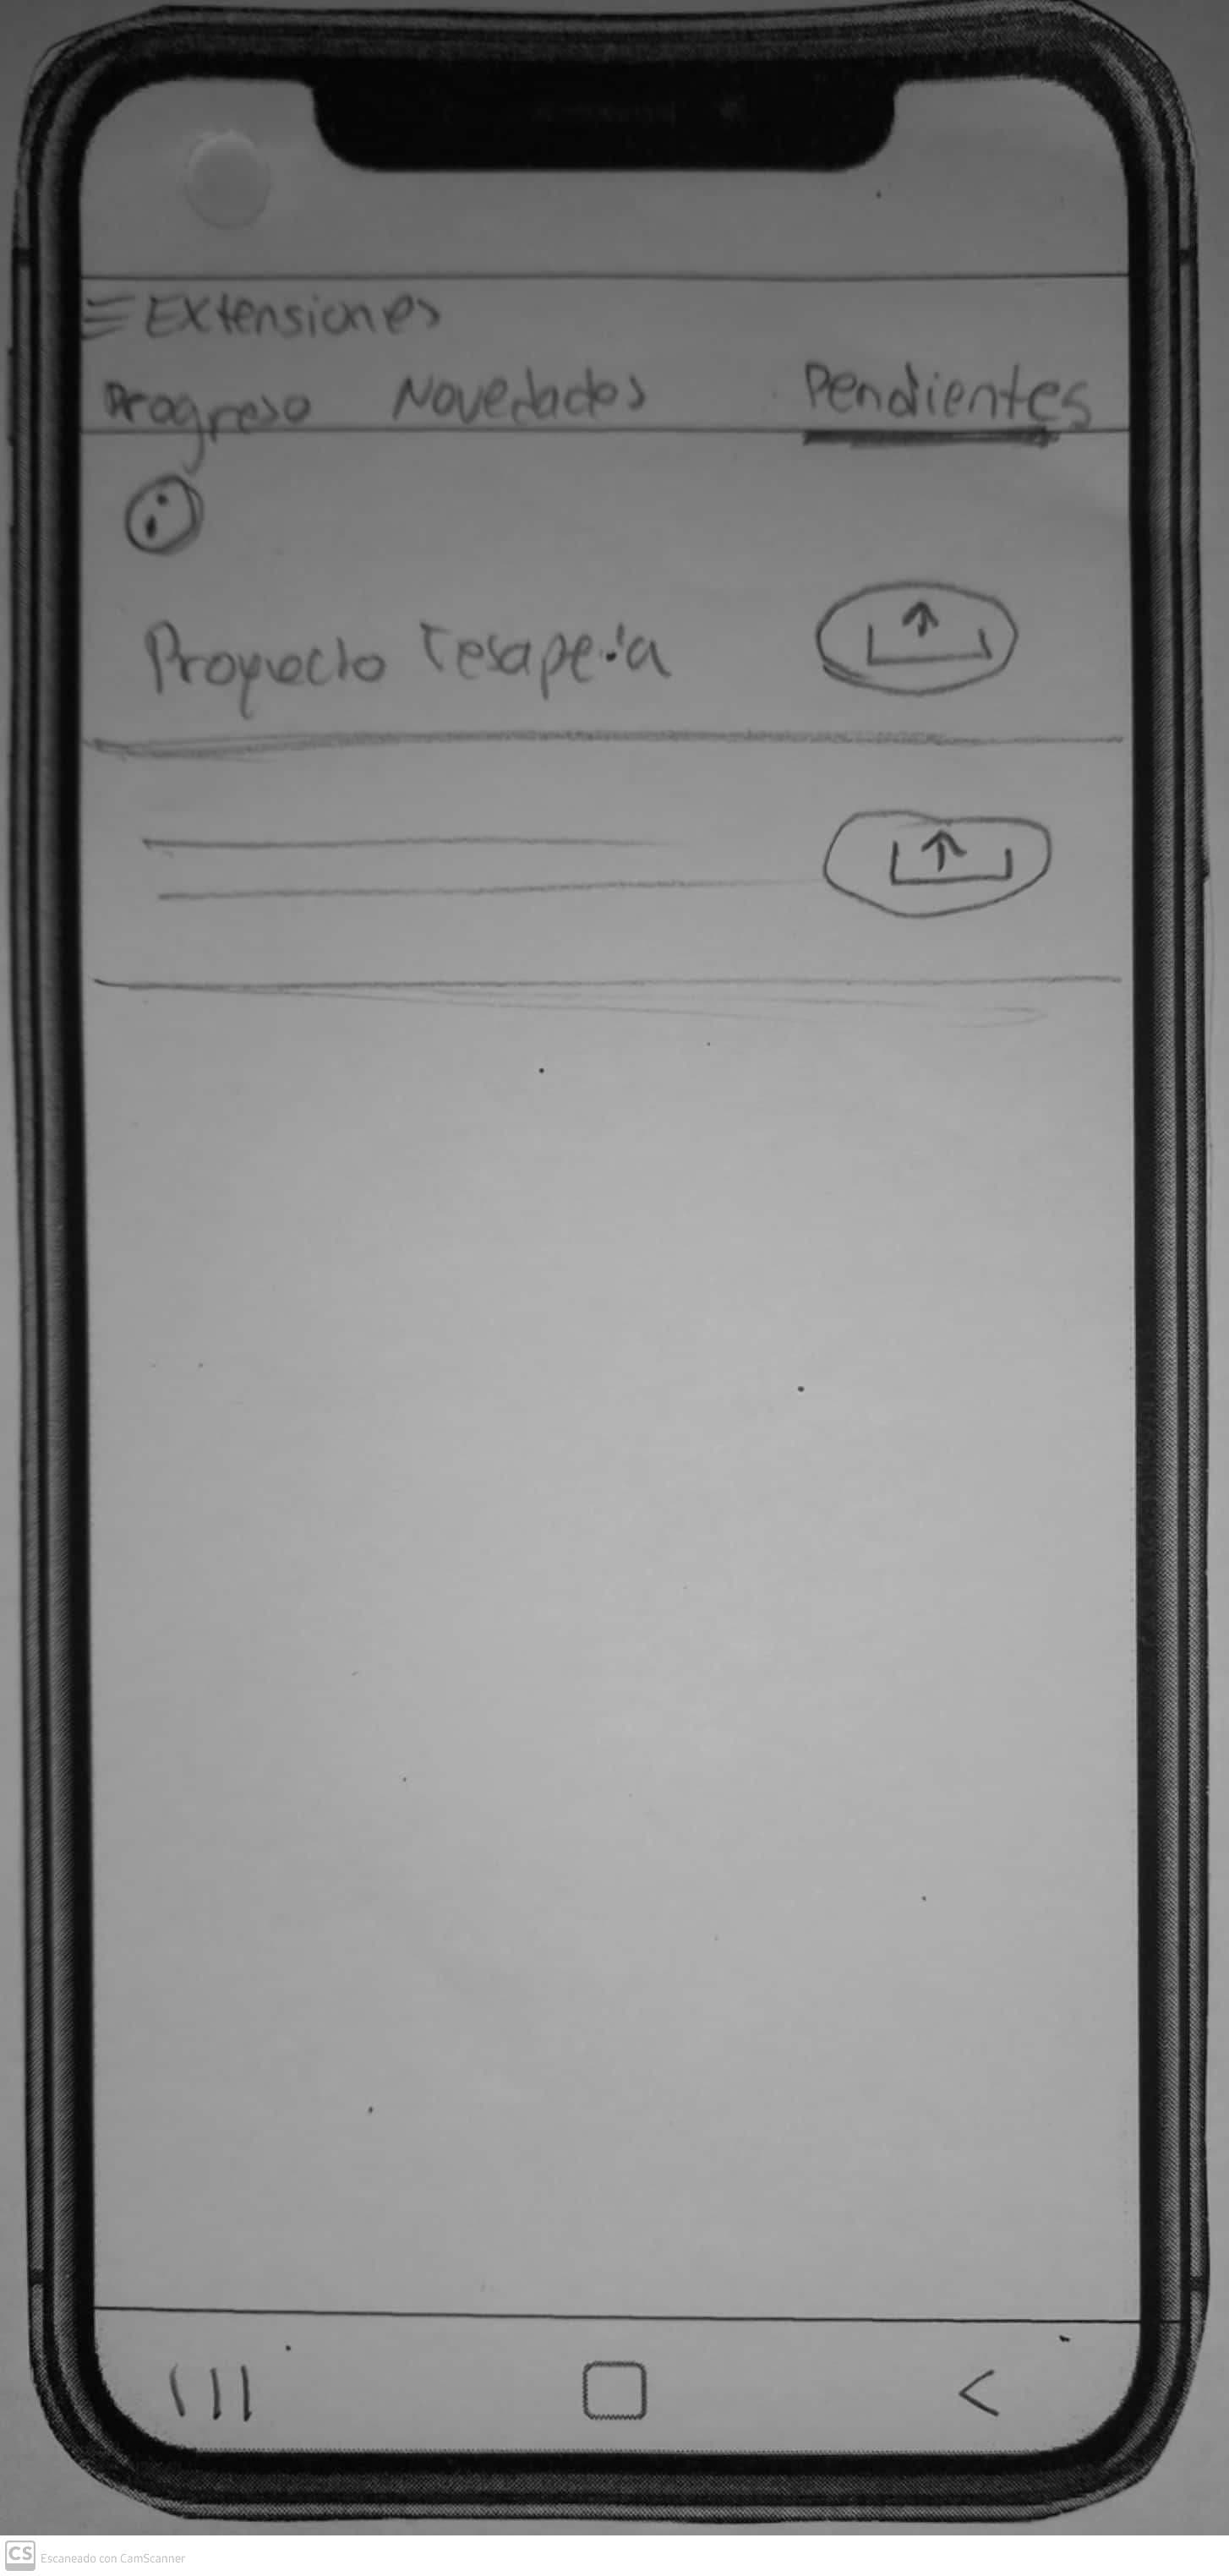 Extensiones
Progreso Novedades Pendientes
Proyecto
CS Escaneado con CamScanner